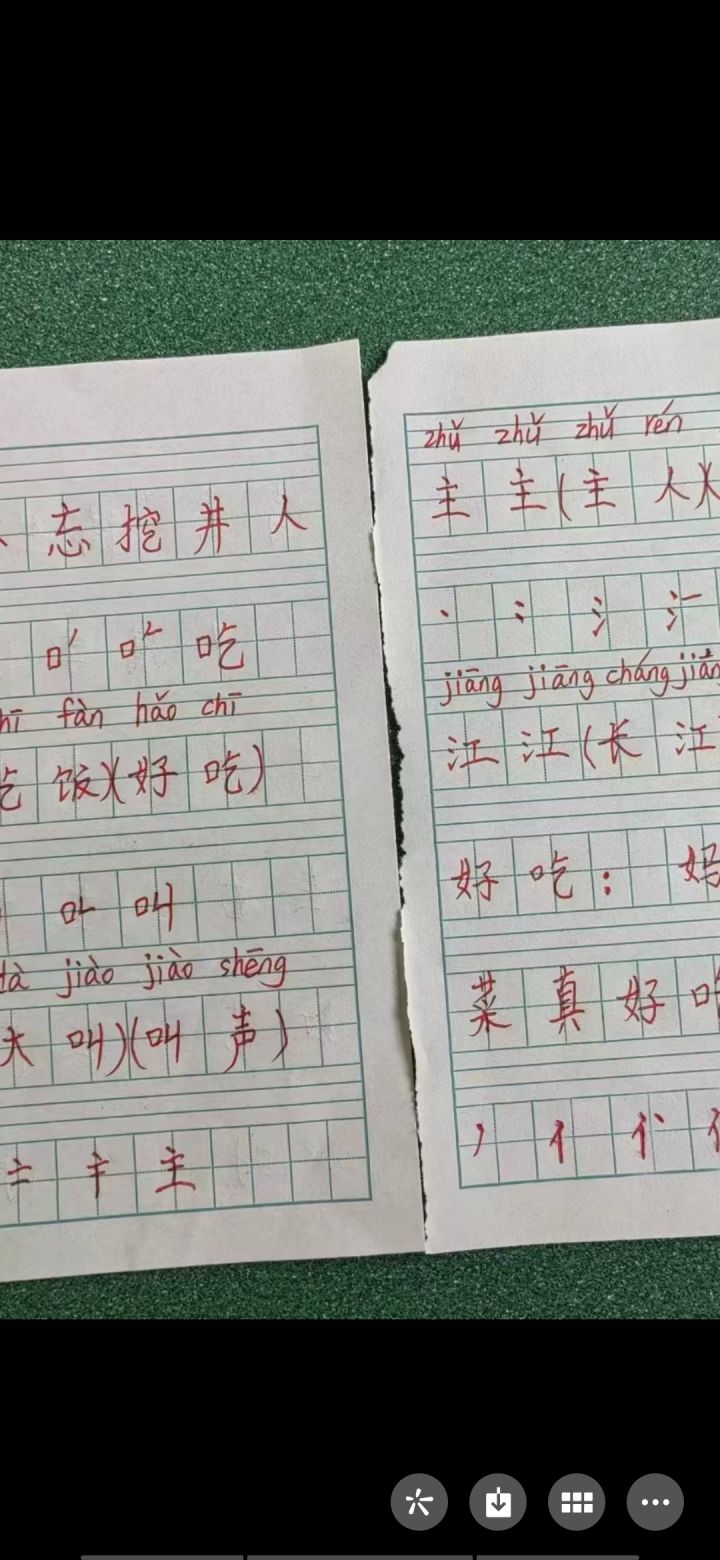 志挖井人
吃
fàn hǎo chī
饭)(好 吃)
叫
jiào jiào shēng
叫)(叫 声)
主
zhǔ zhǔ zhǔ rén
主 主(主 人)(
jiāng jiāng cháng jiāng
江 江(长 江
好 吃: 妈
菜 真 好 吃